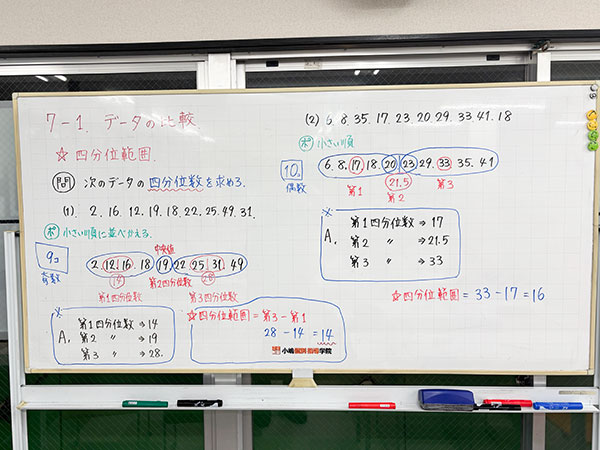 7-1. データの比較
☆ 四分位範囲.
問 次のデータの四分位数を求める.
(1). 2. 16. 12. 19. 18. 22. 25. 49. 31.
ポ 小さい順に並べかえる.
9コ
奇数
中央値
2. 12. 16. 18 19. 22 25. 31. 49
14 28
第1四分位数 第2四分位数 第3四分位数
※
A. 第1四分位数 ⇒ 14
第2 〃 ⇒ 19
第3 〃 ⇒ 28.
☆四分位範囲 = 第3 - 第1
28 - 14 = 14
小嶋個別指導学院
(2) 6. 8. 35. 17. 23. 20. 29. 33. 41. 18
ポ 小さい順
10コ
偶数
6. 8. 17 18. 20 23 29. 33 35. 41
第1 21.5 第3
第2
※
A. 第1四分位数 ⇒ 17
第2 〃 ⇒ 21.5
第3 〃 ⇒ 33
☆四分位範囲 = 33 - 17 = 16